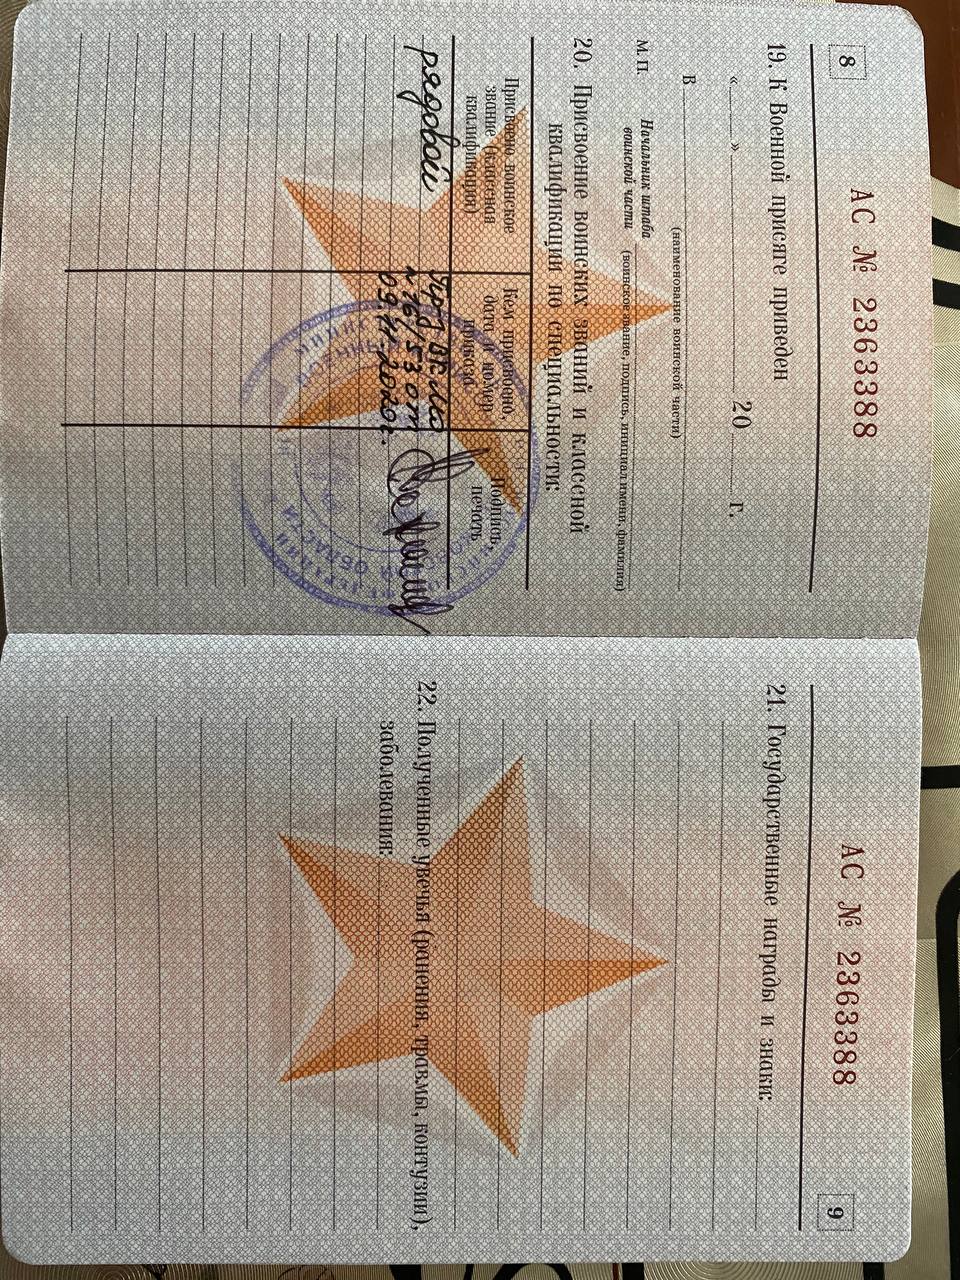 8
АС № 2363388
19. К Военной присяге приведен
« » 20 г.
В
(наименование воинской части)
Начальник штаба
воинской части
(воинское звание, подпись, инициал имени, фамилия)
М. П.
20. Присвоение воинских званий и классной
квалификации по специальности:
Присвоено воинское
звание (классная
квалификация)
Кем присвоено,
дата и номер
приказа
Подпись,
печать
рядовой
от
2020г.
АС № 2363388
9
21. Государственные награды и знаки:
22. Полученные увечья (ранения, травмы, контузии),
заболевания: